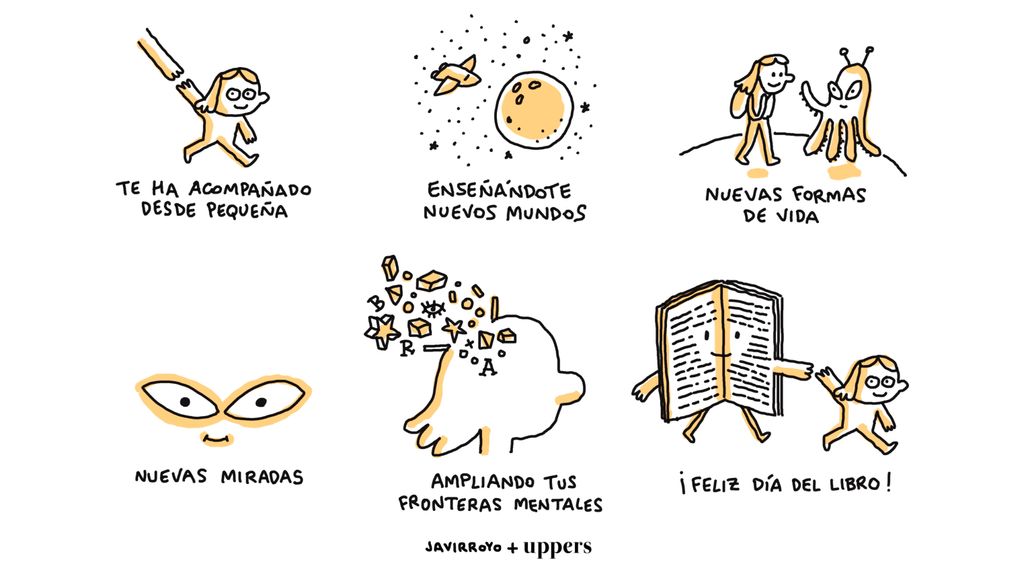 TE HA ACOMPAÑADO
DESDE PEQUEÑA
ENSEÑÁNDOTE
NUEVOS MUNDOS
NUEVAS FORMAS
DE VIDA
B
R
A
NUEVAS MIRADAS
AMPLIANDO TUS
FRONTERAS MENTALES
¡FELIZ DÍA DEL LIBRO!
JAVIRROYO + uppers